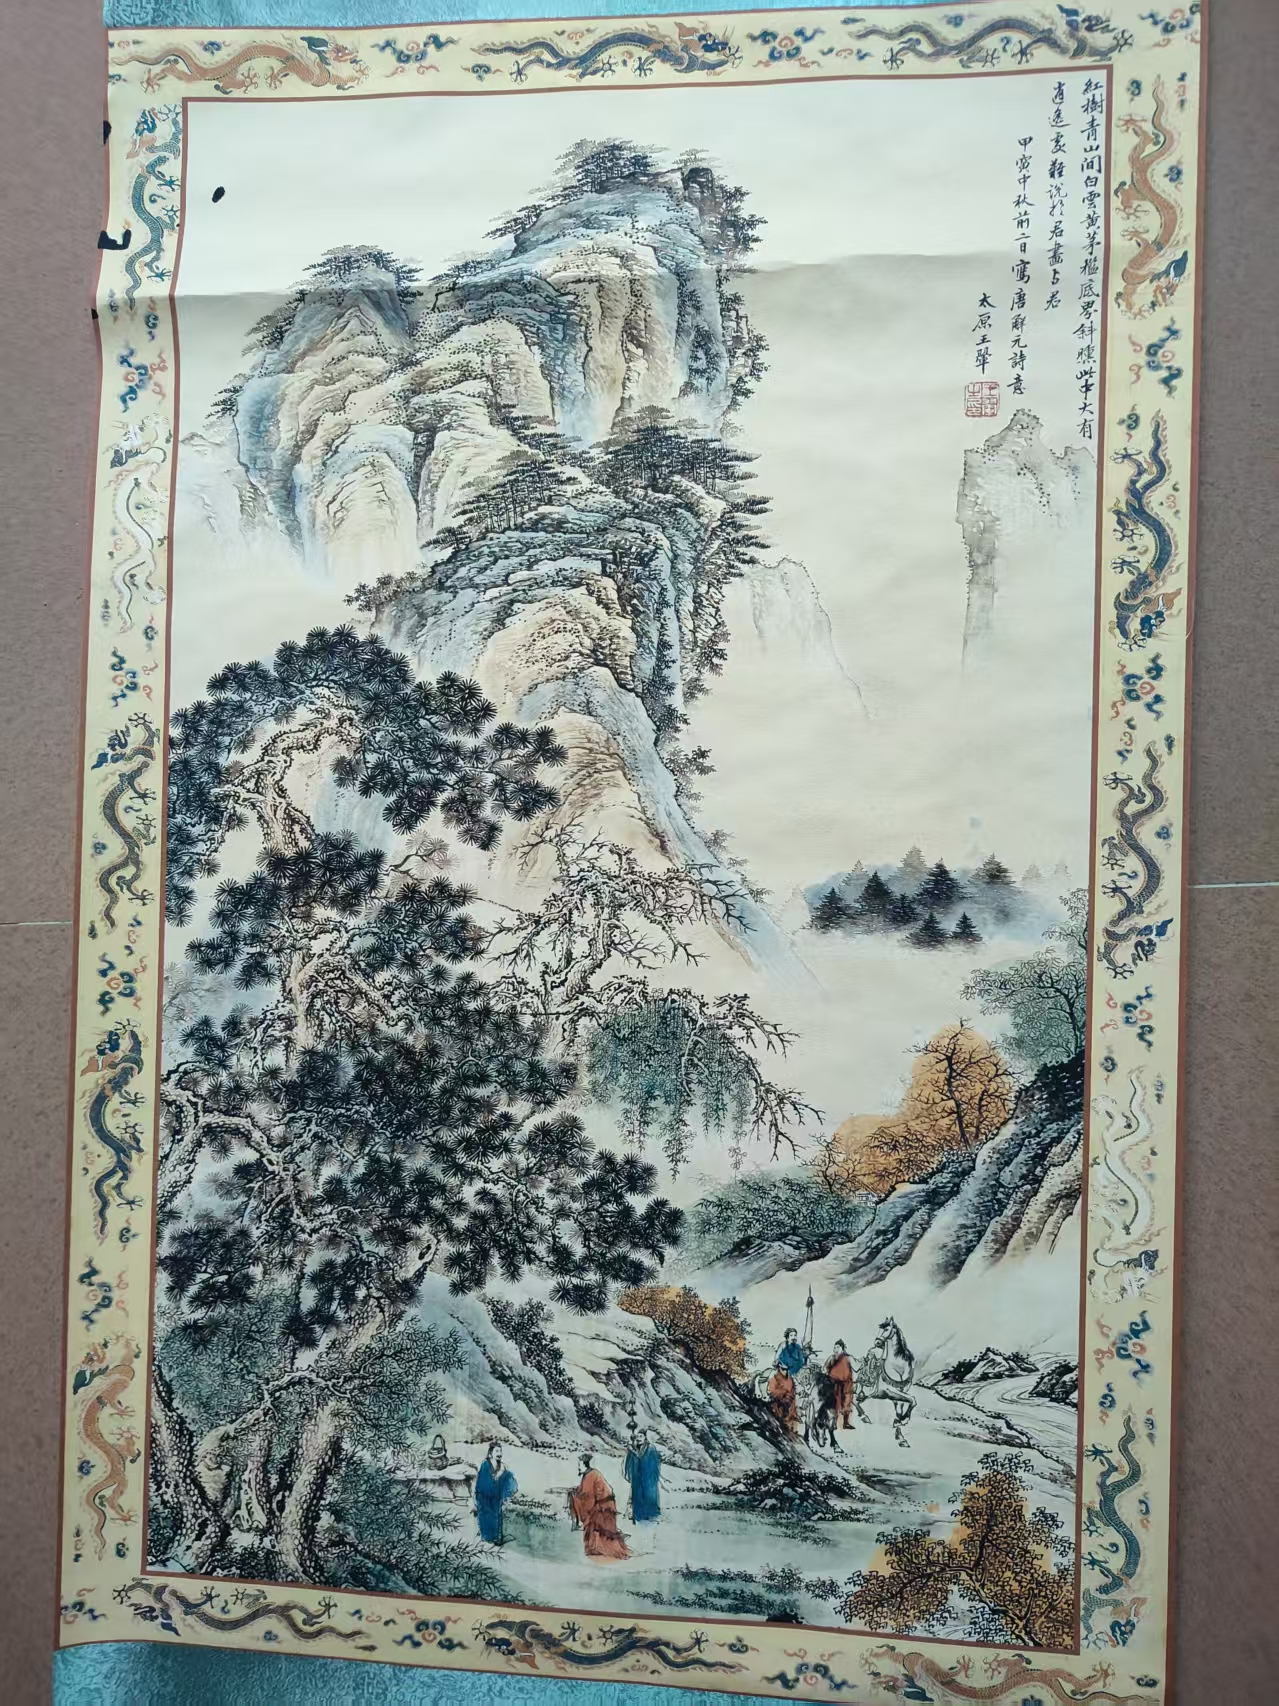 紅樹青山間白雲黄茅檐底界斜曛此中大有
逍遙處難說於君畫與君
甲寅中秋前二日寫唐解元詩意
太原王翬